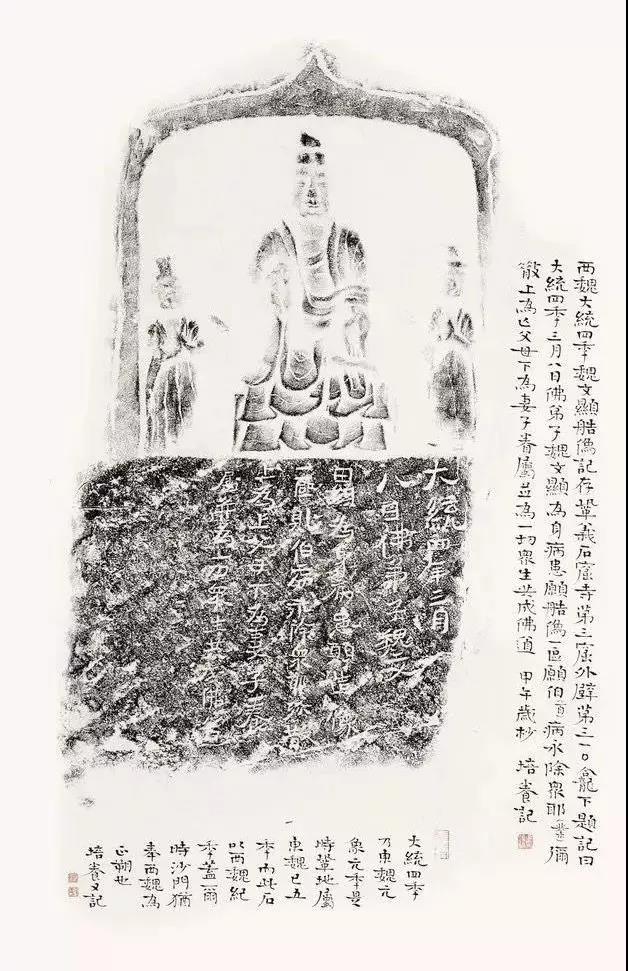 西魏大統四秊魏文顯艁像記存鞏義石窟寺第三窟外壁第三一〇龕下題記曰
大統四秊三月八日佛弟子魏文顯為身病患願艁像一區願伯(百)病永除眾耶(業)彌
散上為亡父母下為妻子眷屬並為一切眾生共成佛道 甲午歲杪 培養記
大統四年三月
八日佛弟子魏文
顯為身病患願造像
一區願伯病永除眾耶彌散
上為亡父母下為妻子眷
屬并為一切眾生共成佛道
大統四秊
乃東魏元
象元秊是
時鞏地屬
東魏已五
秊而此石
以西魏紀
秊蓋爾
時沙門猶
奉西魏為
正朔也
培養又記